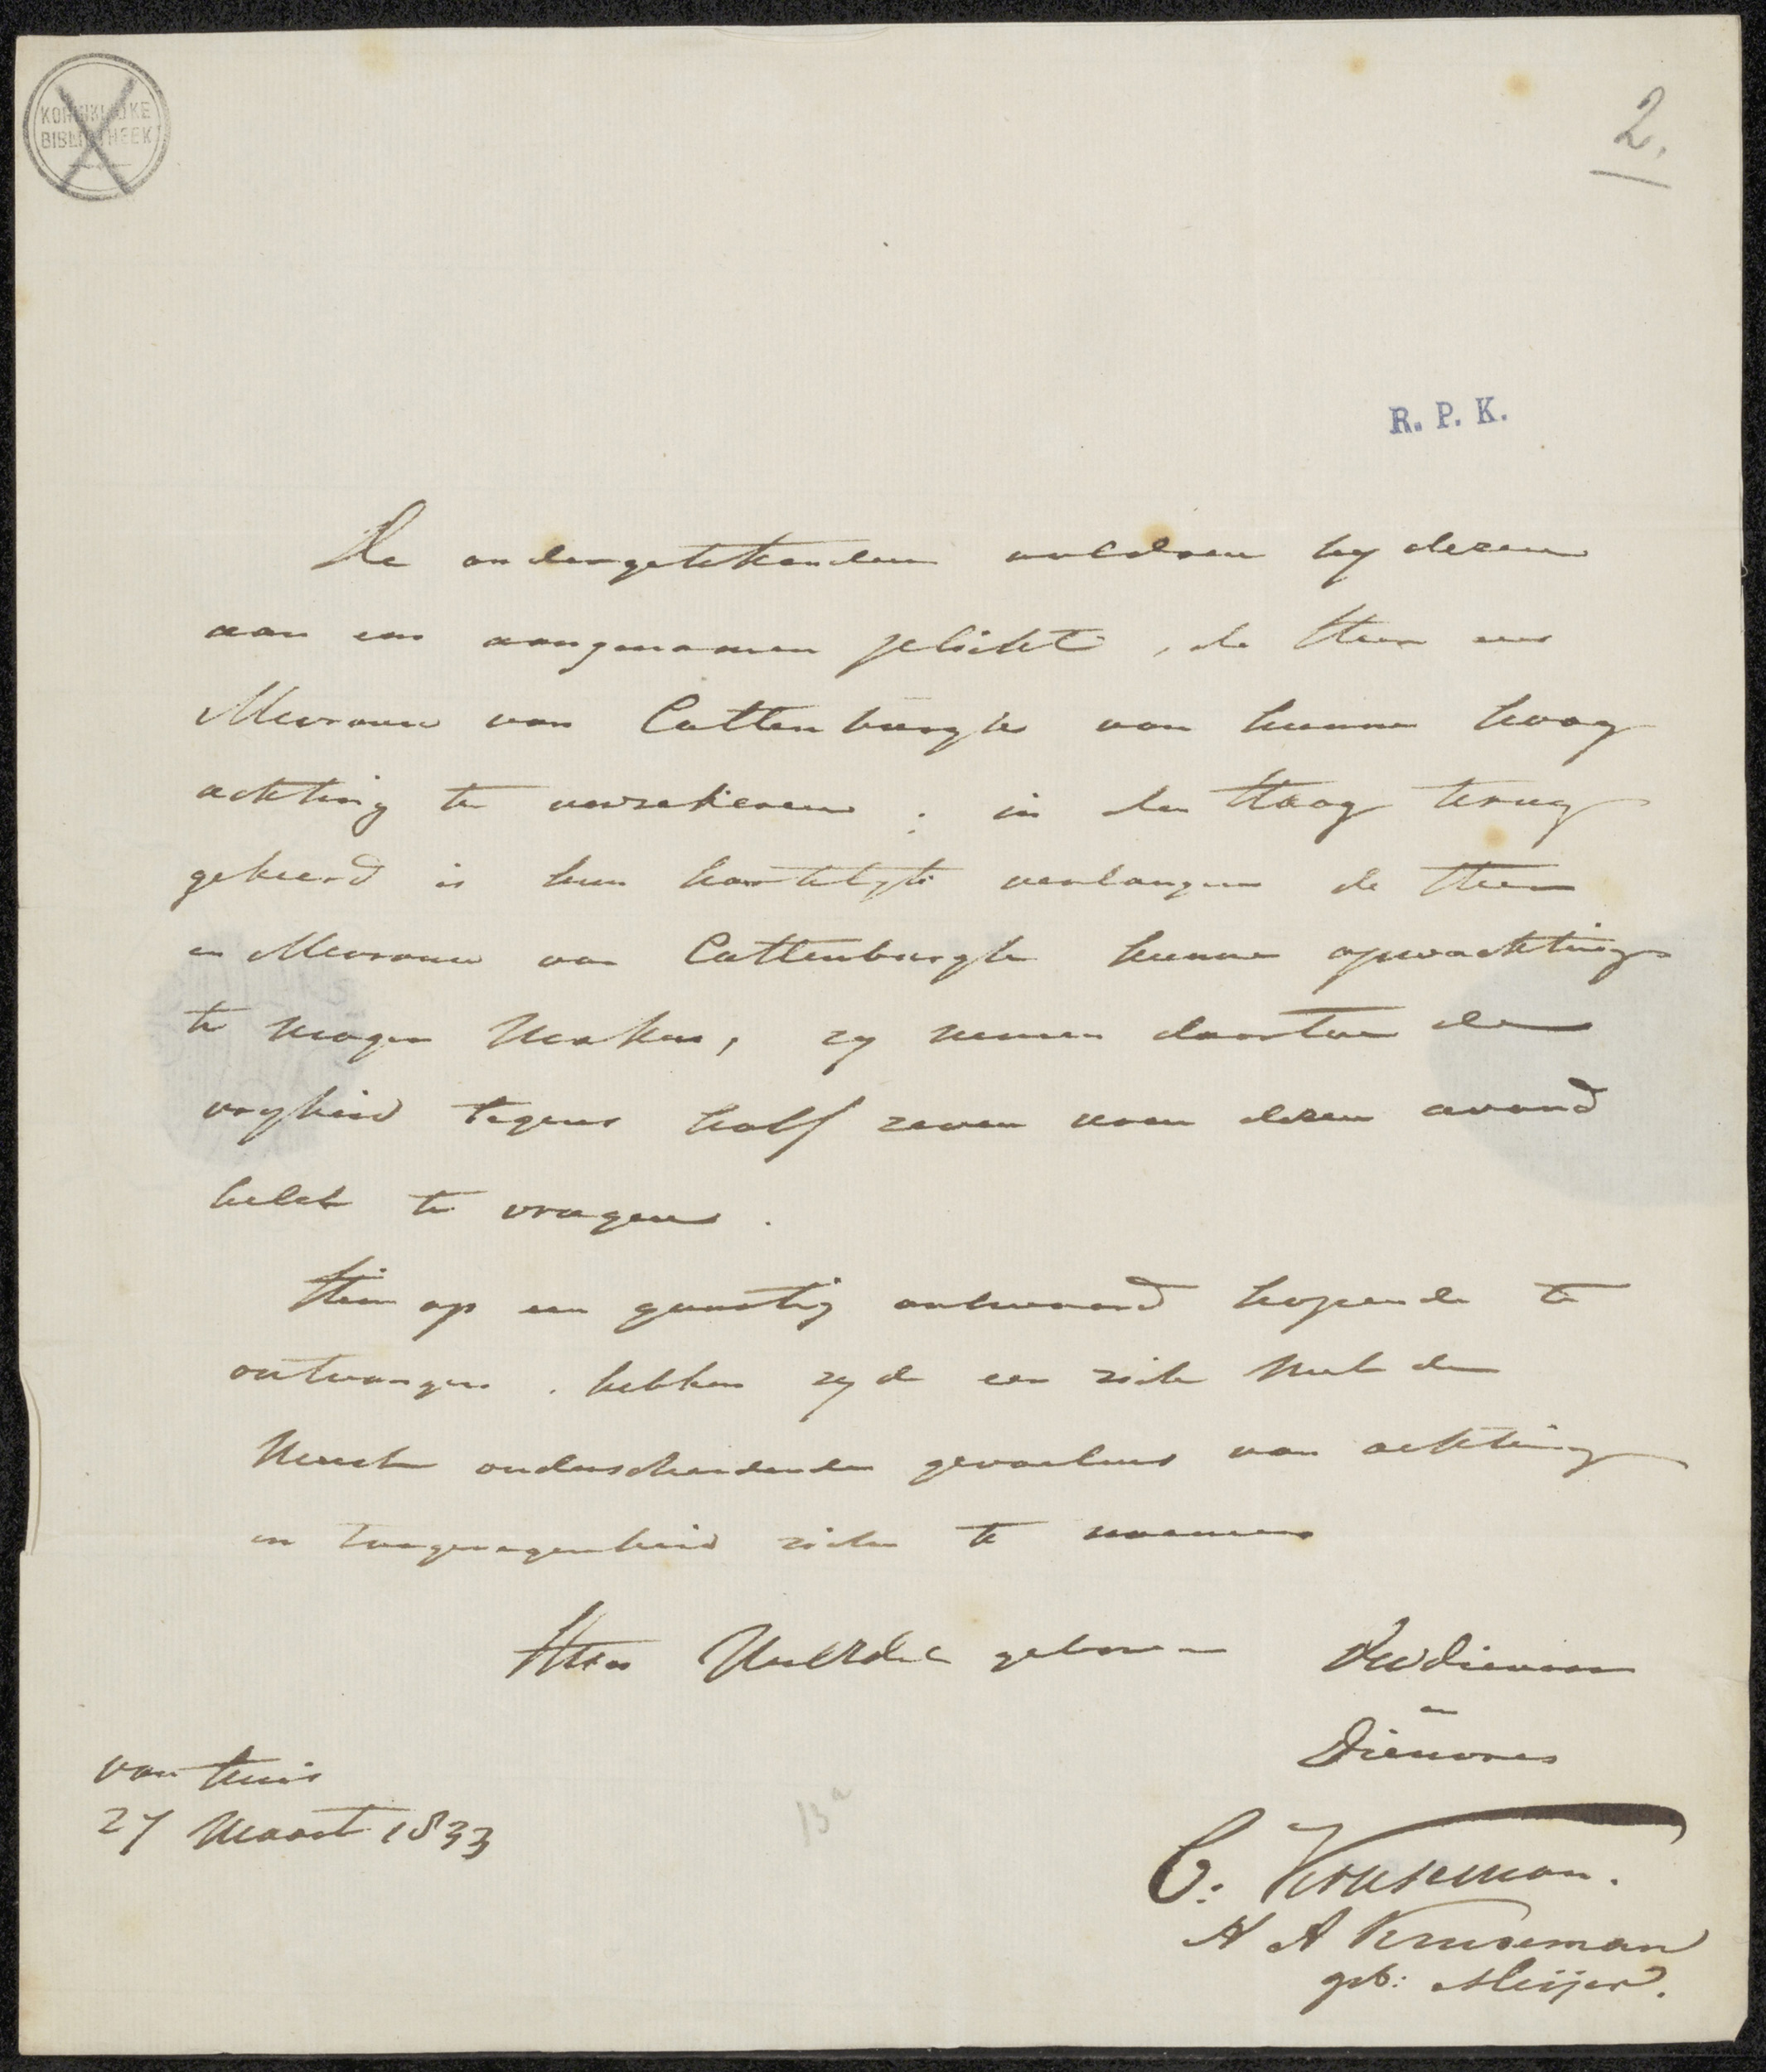 KONINKLIJKE
BIBLIOTHEEK
2.
R. P. K.
De ondergetekenden voldoen by dezen
aan een aangenamen pflicht, de Heer en
Mevrouw van Cattenburgh van hunne hoog
achting te verzekeren; in den Haag terug
gekeerd is hun hartelykst verlangen de Heer
en Mevrouw van Cattenburgh hunne opwachting
te mogen maken, zy nemen daartoe de
vryheid tegens half zeven uren dezen avond
belet te vragen.
Hier op een gunstig antwoord hopende te
ontvangen. hebben zy de eer zich met de
meest onderscheidende gevoelens van achting
en toegenegenheid zich te noemen
geboren Dw dienaar
en
Dienares
van Huis
27 Maart 1833
13a
C: Kruseman.
H A Kruseman
geb: Meijer.